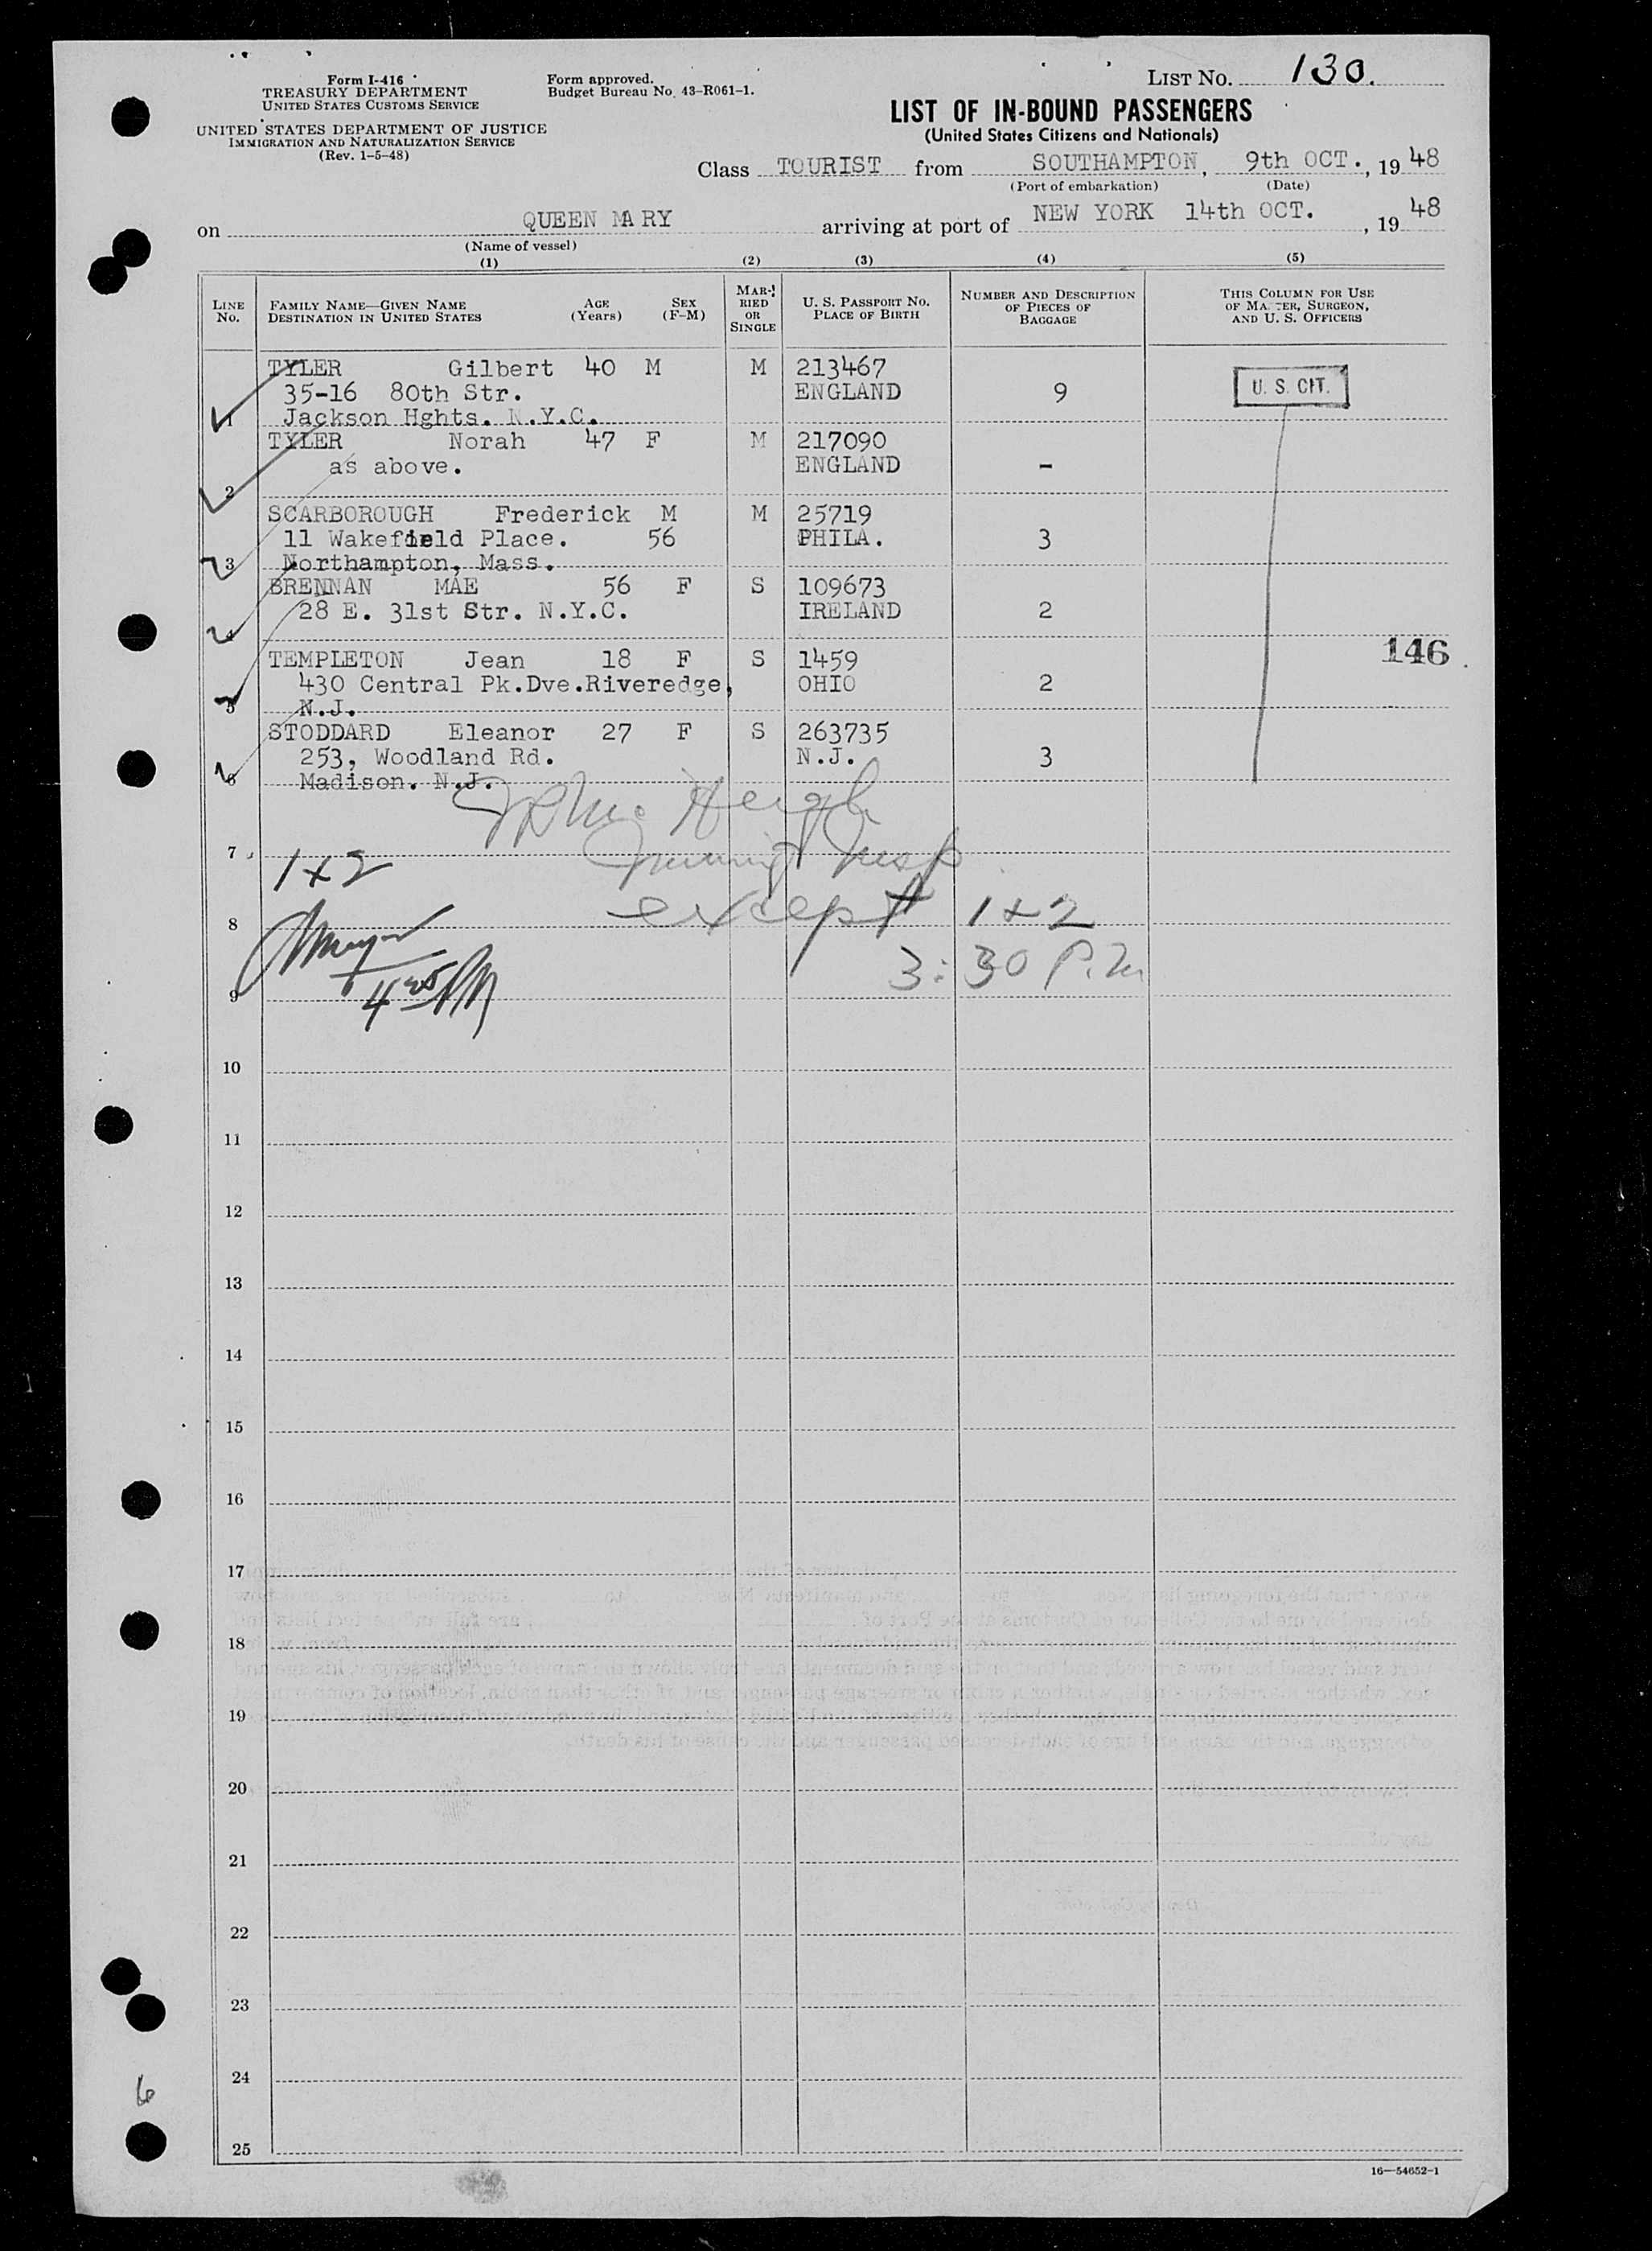 Form I-416
TREASURY DEPARTMENT
UNITED STATES CUSTOMS SERVICE
UNITED STATES DEPARTMENT OF JUSTICE
IMMIGRATION AND NATURALIZATION SERVICE
(Rev. 1-5-48)
Form approved.
Budget Bureau No. 43-R061-1.
LIST NO. 130.
LIST OF IN-BOUND PASSENGERS
(United States Citizens and Nationals)
Class TOURIST from SOUTHAMPTON, 9th OCT., 19 48
(Port of embarkation) (Date)
on QUEEN MARY arriving at port of NEW YORK 14th OCT. , 19 48
(Name of vessel)
(1) (2) (3) (4) (5)
LINE NO. FAMILY NAME—GIVEN NAME DESTINATION IN UNITED STATES AGE (Years) SEX (F-M) MARRIED OR SINGLE U. S. PASSPORT NO. PLACE OF BIRTH NUMBER AND DESCRIPTION OF PIECES OF BAGGAGE THIS COLUMN FOR USE OF MASTER, SURGEON, AND U. S. OFFICERS
TYLER Gilbert 40 M M 213467
35-16 80th Str. ENGLAND 9 U. S. CIT.
1 Jackson Hghts. N.Y.C.
TYLER Norah 47 F M 217090
as above. ENGLAND -
2
SCARBOROUGH Frederick M M 25719
11 Wakefield Place. 56 PHILA. 3
3 Northampton, Mass.
BRENNAN MAE 56 F S 109673
28 E. 31st Str. N.Y.C. IRELAND 2
4
146
TEMPLETON Jean 18 F S 1459
430 Central Pk.Dve.Riveredge, OHIO 2
5 N.J.
STODDARD Eleanor 27 F S 263735
253, Woodland Rd. N.J. 3
6 Madison. N.J.
7
1+2
Immigt Insp
8 except 1+2
3:30 P.M.
9
4 25 PM
10
11
12
13
14
15
16
17
18
19
20
21
22
23
24
6
25
16—54652-1